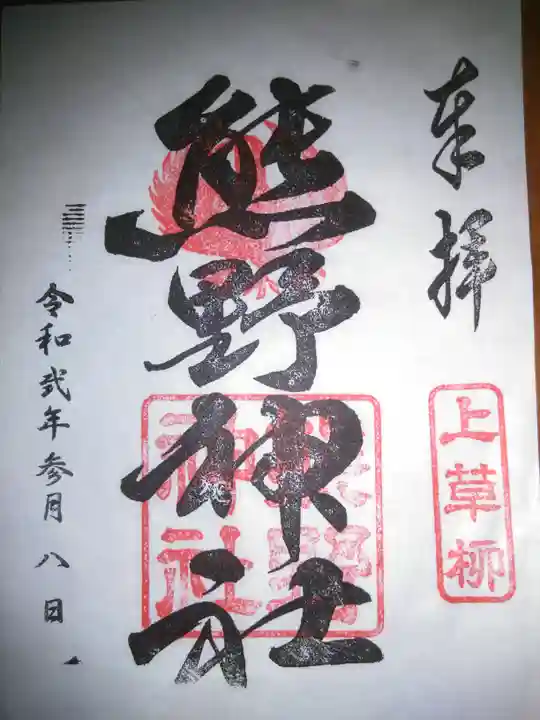 奉拝
上草柳
熊野神社
熊野
神社
令和弐年参月八日